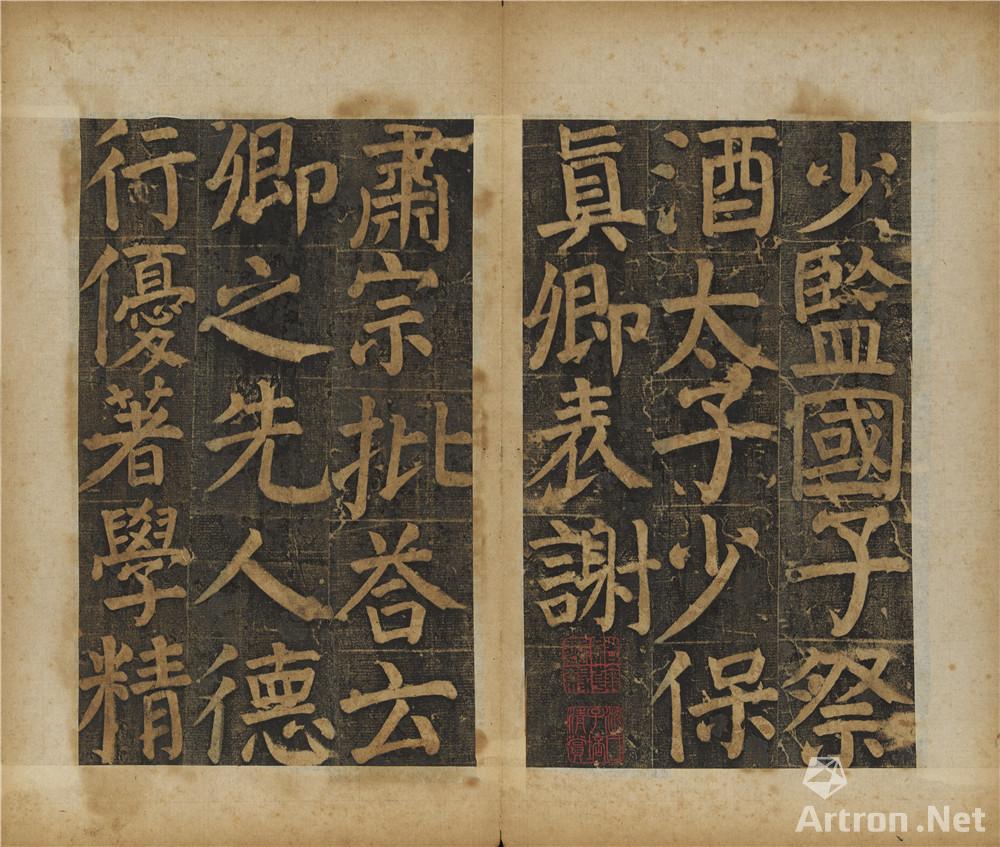 少監國子祭
酒太子少保
眞卿表謝
肅宗批荅云
卿之先人德
行優著學精
Artron.Net